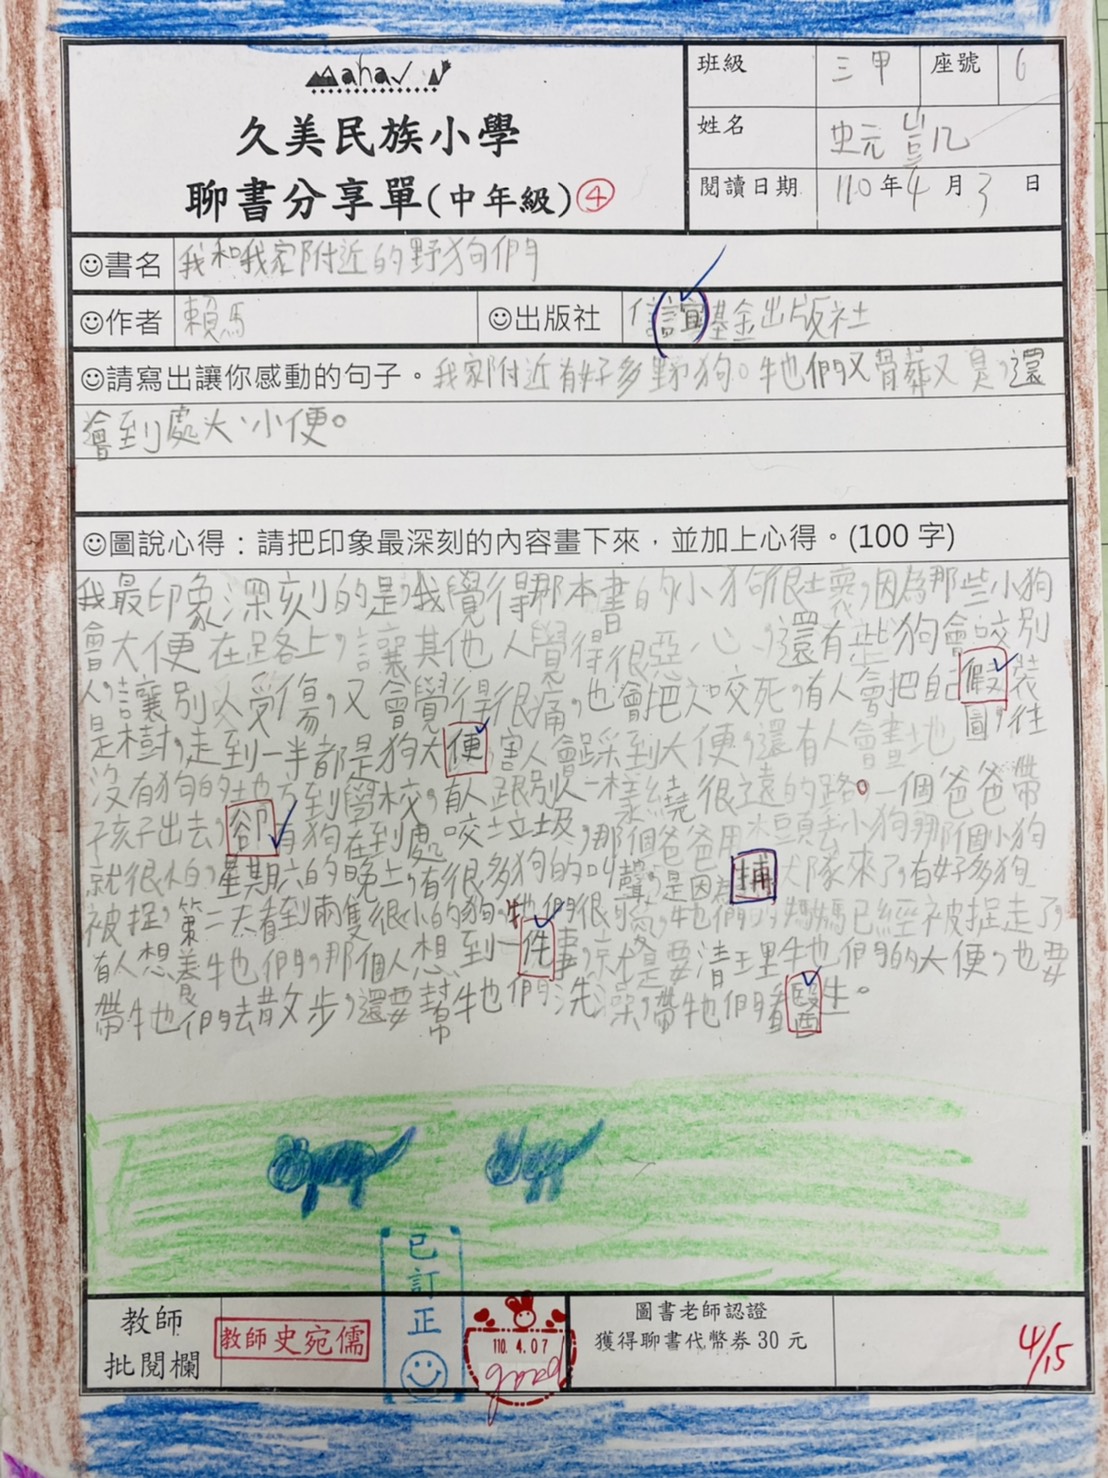 Mahavun
久美民族小學
聊書分享單(中年級)④
班級 三甲 座號 6
姓名 史元豈凡
閱讀日期 110年4月3日
☺書名 我和我家附近的野狗們
☺作者 賴馬 ☺出版社 信誼基金出版社
☺請寫出讓你感動的句子。我家附近有好多野狗。牠們又骨葬又臭,還
會到處大、小便。
☺圖說心得:請把印象最深刻的內容畫下來,並加上心得。(100字)
我最印象深刻的是,我覺得那本書的小狗很壞,因為那些小狗
會大便在路上,讓其他人覺得很惡心,還有些狗會咬別
人,讓別人受傷,又會覺得很痛,也會把人咬死,有人會把自己假裝
是樹,走到一半都是狗大便,害人會踩到大便,還有人會畫地圖,往
沒有狗的地方到學校,有人跟別人一樣繞很遠的路。一個爸爸帶
子孩子出去,卻有狗在到處咬垃圾,那個爸爸用 頭丟小狗,那個小狗
就很怕,星期六的晚上,有很多狗的叫聲,是因為捕犬隊來了,有好多狗
被捉,第二天看到兩隻很小的狗,牠們很可 ,牠們的媽媽已經被捉走了,
有人想養牠們,那個人想到一件事,就是要清理牠們的大便,也要
帶牠們去散步,還要幫牠們洗澡,帶牠們看醫生。
已訂正
教師
批閱欄
教師史宛儒
110.4.07
圖書老師認證
獲得聊書代幣券30元
4/15